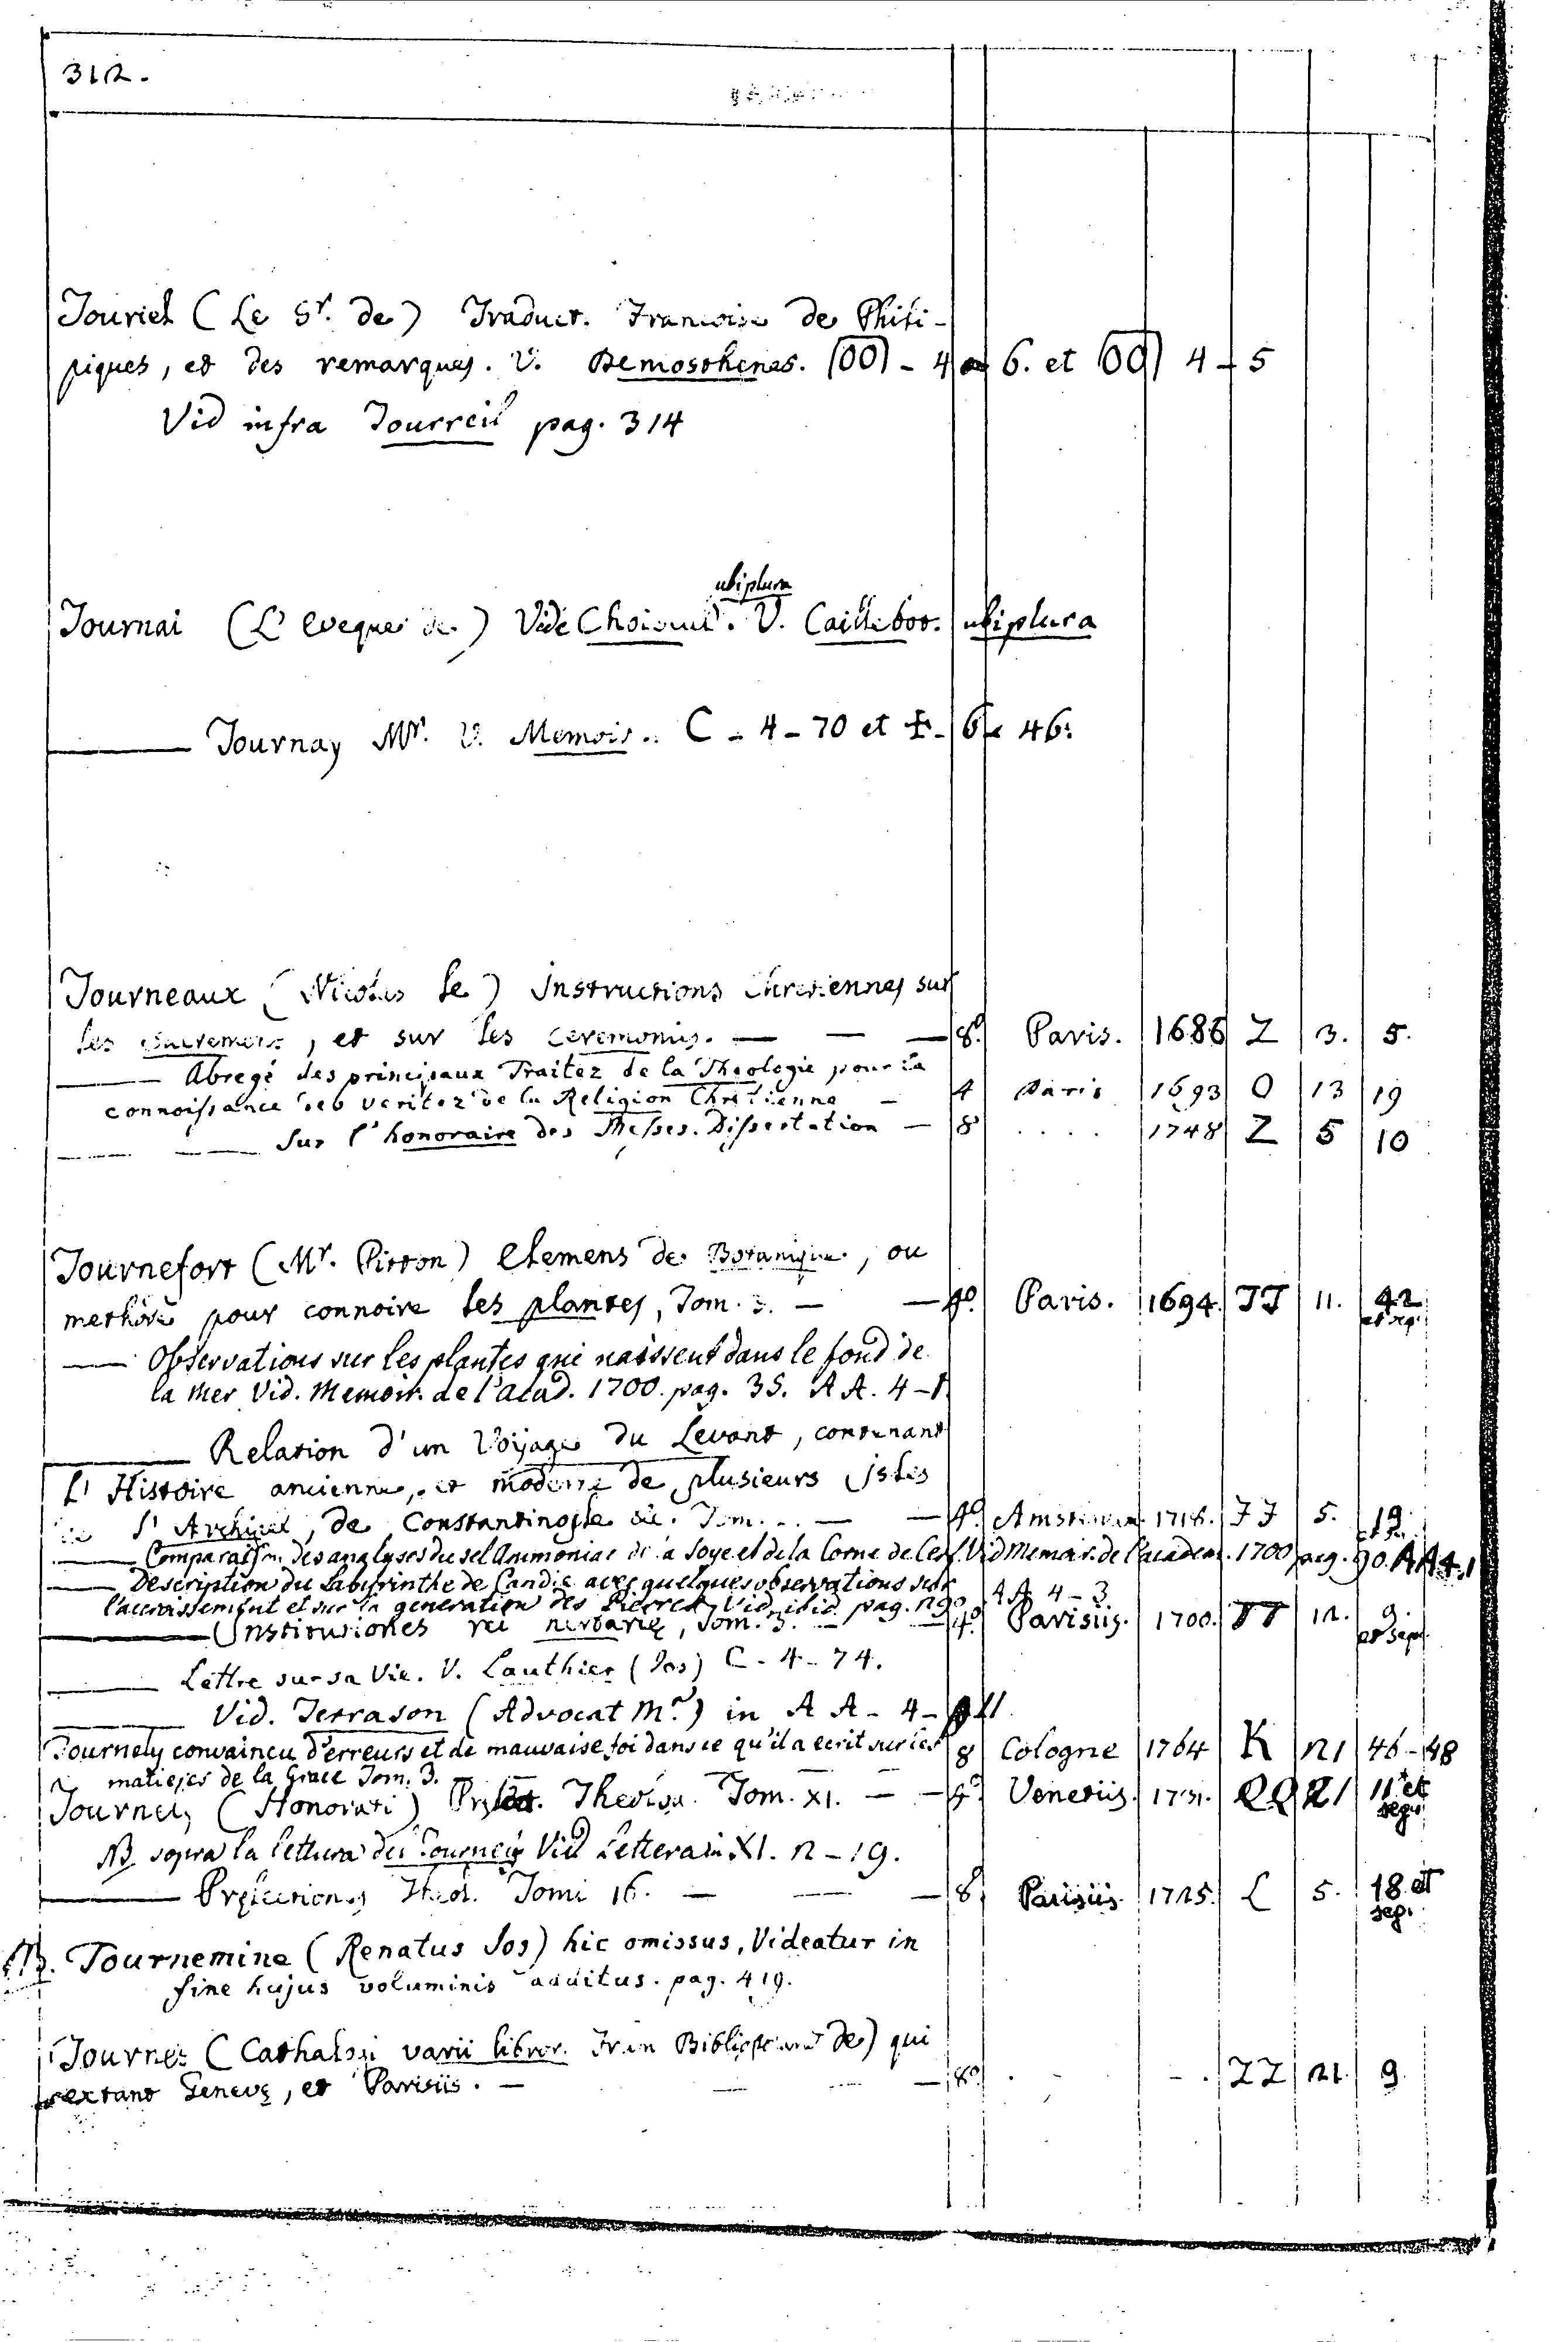 312.
Touriel (Le Sr. de) Traduct. Francoise de Phili-
piques, et des remarques. V. Demosthenes. (OO) - 4 6. et (OO) 4 - 5
Vid infra Tourreil pag. 314
ubiplura
Tournai (L'Eveque de) Vide Choiseul. V. Caillebot. ubiplura
Tournay Mr. V. Memoir. C - 4 - 70 et - 6 - 46.
Tourneaux (Nicolas le) Instructions Chretiennes sur
les Sacremens, et sur les Ceremonies. — — — 8o. Paris. 1686 Z 3. 5.
Abregé des principaux Traitez de la Theologie pour la
connoissance des veritez de la Religion Chrétienne — 4 Paris 1693 O 13 19
Sur l'honoraire des Messes. Dissertation — 8 . . . . 1748 Z 5 10
Tournefort (Mr. Pitton) Elemens de Botanique, ou
methode pour connoire les plantes, Tom. 3. — — 4o. Paris. 1694. TT 11. 42 et seq.
Observations sur les plantes qui naissent dans le fond de
la mer Vid. Memoir. de l'Acad. 1700. pag. 35. AA. 4-1
Relation d'un Voyage du Levant, contenant
L'Histoire ancienne, et moderne de plusieurs Isles
de l'Archipel, de Constantinople &c. Tom. — — 4o. Amsterdam 1718. JJ 5. 19
Comparaison des analyses du sel Ammoniac de la Soye et de la Corne de Cerf. Vid Memoir. de l'academ. 1700 pag. 90. AA 4.1
Description du Labyrinthe de Candie avec quelques observations sur
l'accroissement et sur la generation des Pierres, Vid. ibid. pag. 290 AA 4-3
Institutiones rei herbariæ, Tom. 3. — — 4o. Parisiis. 1700. TT 12. 9. et seq.
Lettre sur sa Vie. V. Lauthier (Jos) C - 4 - 74.
Vid. Terrason (Advocat Mr.) in AA - 4 - 11
Tournely convaincu d'erreurs et de mauvaise foi dans ce qu'il a ecrit sur les 8 Cologne 1764 K 21 46-48
matieres de la Grace Tom. 3.
Tournely (Honorati) Prælect. Theolog. Tom. XI. — — 4o. Venetiis. 1731. QQ 21 11 et seqq
NB sopra la lettura del Tournely Vid Lettera in XI. 2 - 19.
Prælectiones Theol. Tomi 16. — — — 8. Parisiis. 1725. L 5. 18. et seq.
NB. Tournemine (Renatus Jos) hic omissus, Videatur in
fine hujus voluminis additus. pag. 419.
Tournes (Cathalogi varii libror. Fran Bibliop de) qui
extant Genevæ, et Parisiis. — — 8o. . - . ZZ 21. 9.